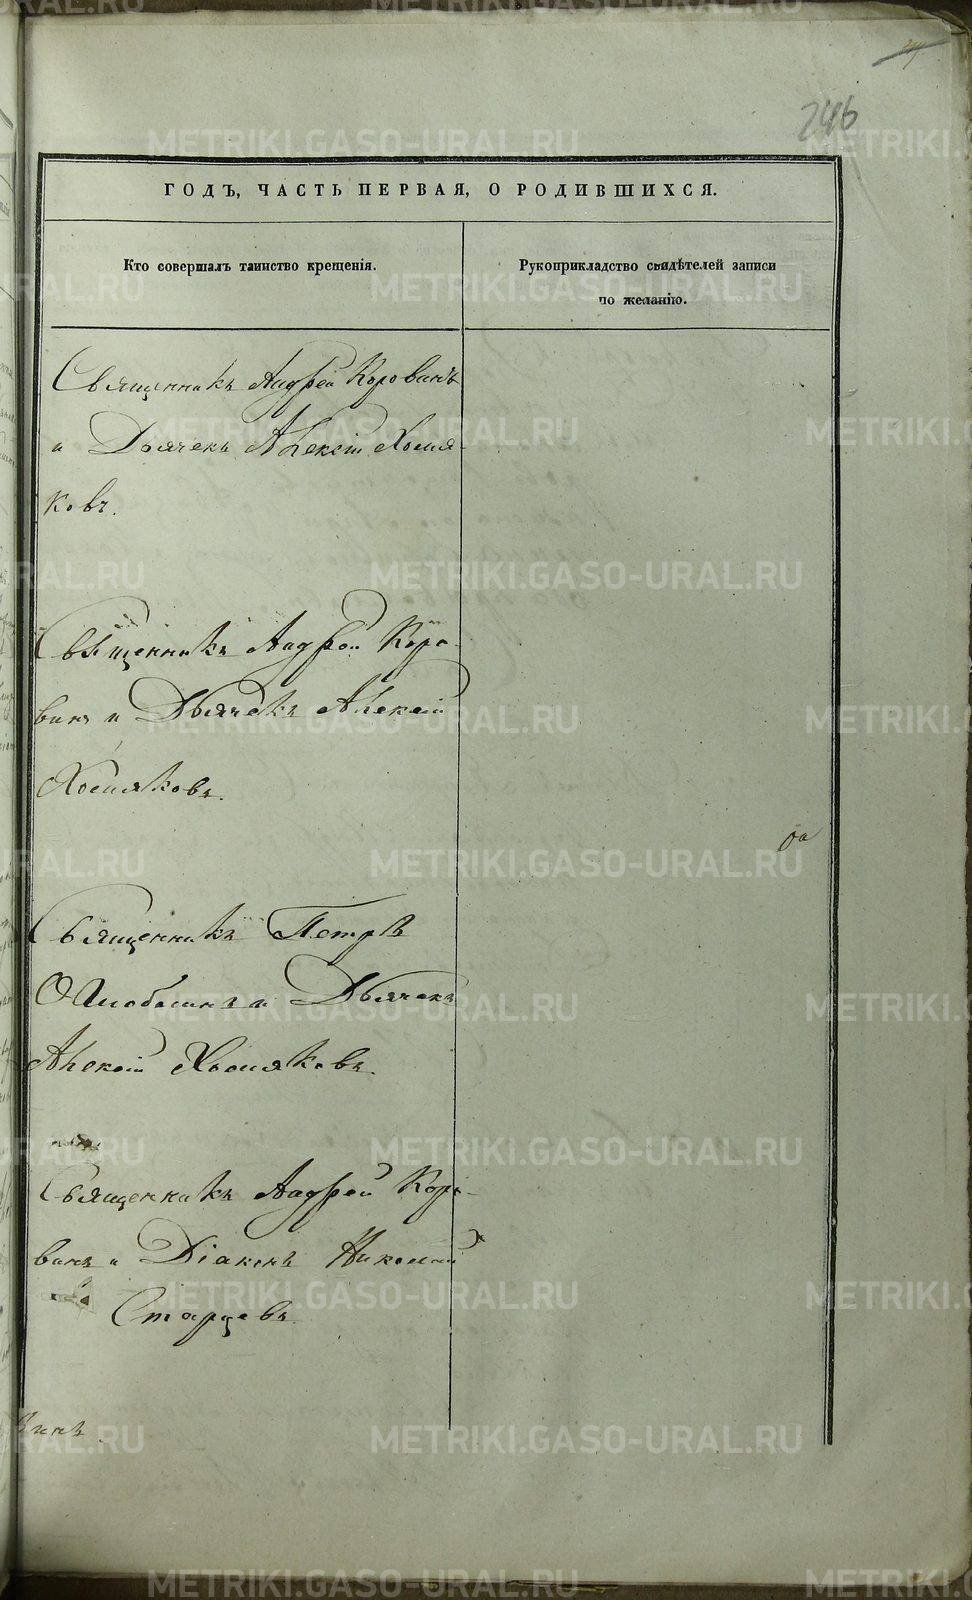 246
ГОДЪ, ЧАСТЬ ПЕРВАЯ, О РОДИВШИХСЯ.
Кто совершалъ таинство крещенія.
Рукоприкладство свидѣтелей записи
по желанію.
Священникъ Андрей Коровинъ
и Дьячекъ Алексій Хомя-
ковъ.
Священникъ Андрей Коро-
винъ и Дьячекъ Алексій
Хомяковъ.
Священникъ Петръ
и Дьячекъ
Алексій Хомяковъ.
Священникъ Андрей Коро-
винъ и Діаконъ Николай
Старцевъ
METRIKI.GASO-URAL.RU